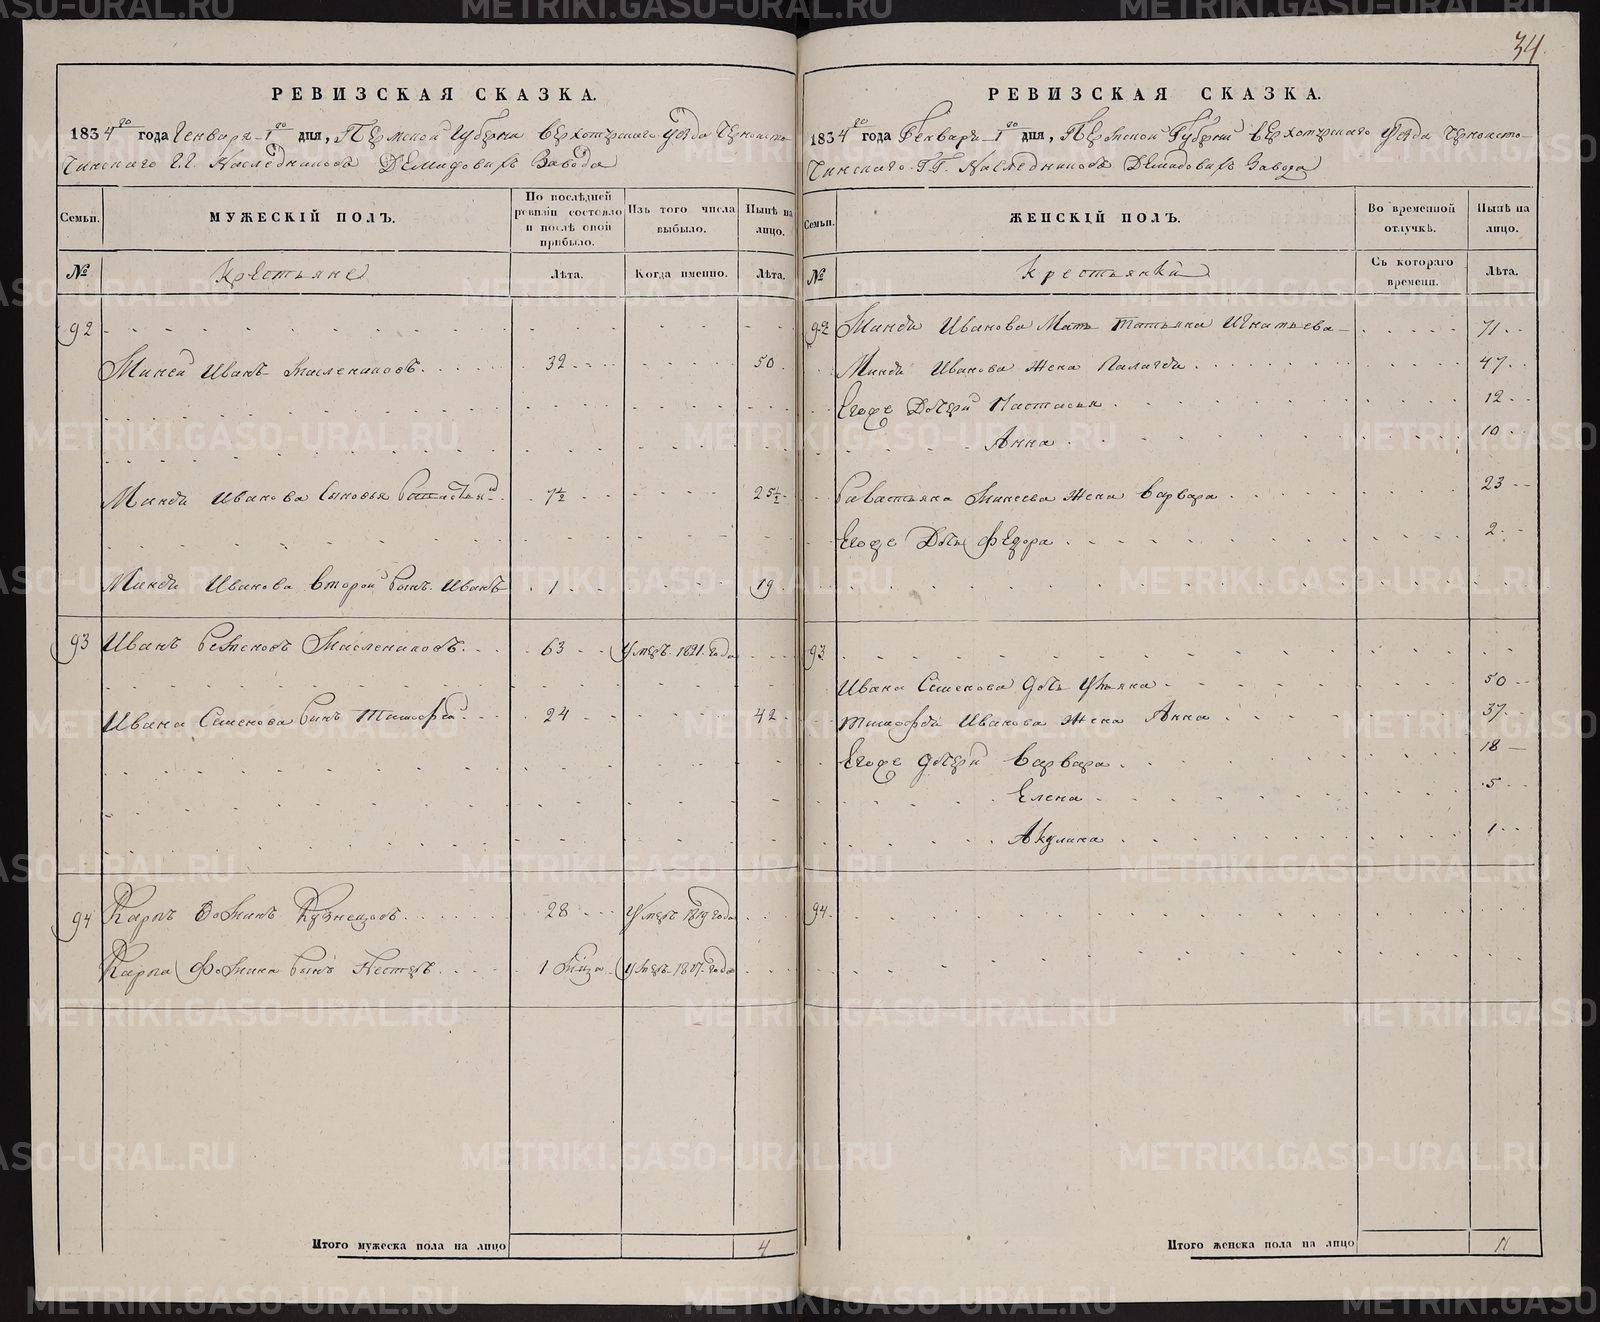 34.
РЕВИЗСКАЯ СКАЗКА.
1834го года Генваря 1го дня, Пермской Губерни Верхотурскаго уѣзда Черноисто-
чинскаго Г.Г. Наследниковъ Демидовыхъ Завода
Семьи.
МУЖЕСКІЙ ПОЛЪ.
По послѣдней ревизіи состояло и послѣ оной прибыло.
Изъ того числа выбыло.
Нынѣ на лицо.
№
Крестьяне
Лѣта.
Когда именно.
Лѣта.
92
Миней Иванъ Маслениковъ 32 50
Минѣи Иванова Сыновья 7½ 25½
Минѣи Иванова второй Сынъ Иванъ 1 19
93 Иванъ Семеновъ Маслениковъ 63 Умеръ 1821 года
Ивана Семенова Сынъ Тимофей 24 42
94 Карпъ Фоминъ Кузнецовъ 28 Умеръ 1819 года
Карпа Фомина Сынъ Нестеръ 1 Умеръ 1817 года
Итого мужеска пола на лицо 4
РЕВИЗСКАЯ СКАЗКА.
1834го года Генваря 1го дня, Пермской Губерни Верхотурскаго уѣзда Черноисто-
чинскаго Г.Г. Наследниковъ Демидовыхъ Завода
Семьи.
ЖЕНСКІЙ ПОЛЪ.
Во временной отлучкѣ.
Нынѣ на лицо.
№
Крестьянки
Съ котораго времени.
Лѣта.
92 Минѣи Иванова Мать Татьяна Игнатьева 71
Минѣи Иванова Жена Палагѣи 47
Егоже Дочери Настасья 12
Анна 10
Савастьяна Минеева Жена Варвара 23
Егоже Дочь Федора 2
93
Ивана Семенова Дочь Ульяна 50
Тимофѣи Иванова Жена Анна 37
Егоже Дочери Варвара 18
Елена 5
Акулина 1
94
Итого женска пола на лицо 11
METRIKI.GASO-URAL.RU